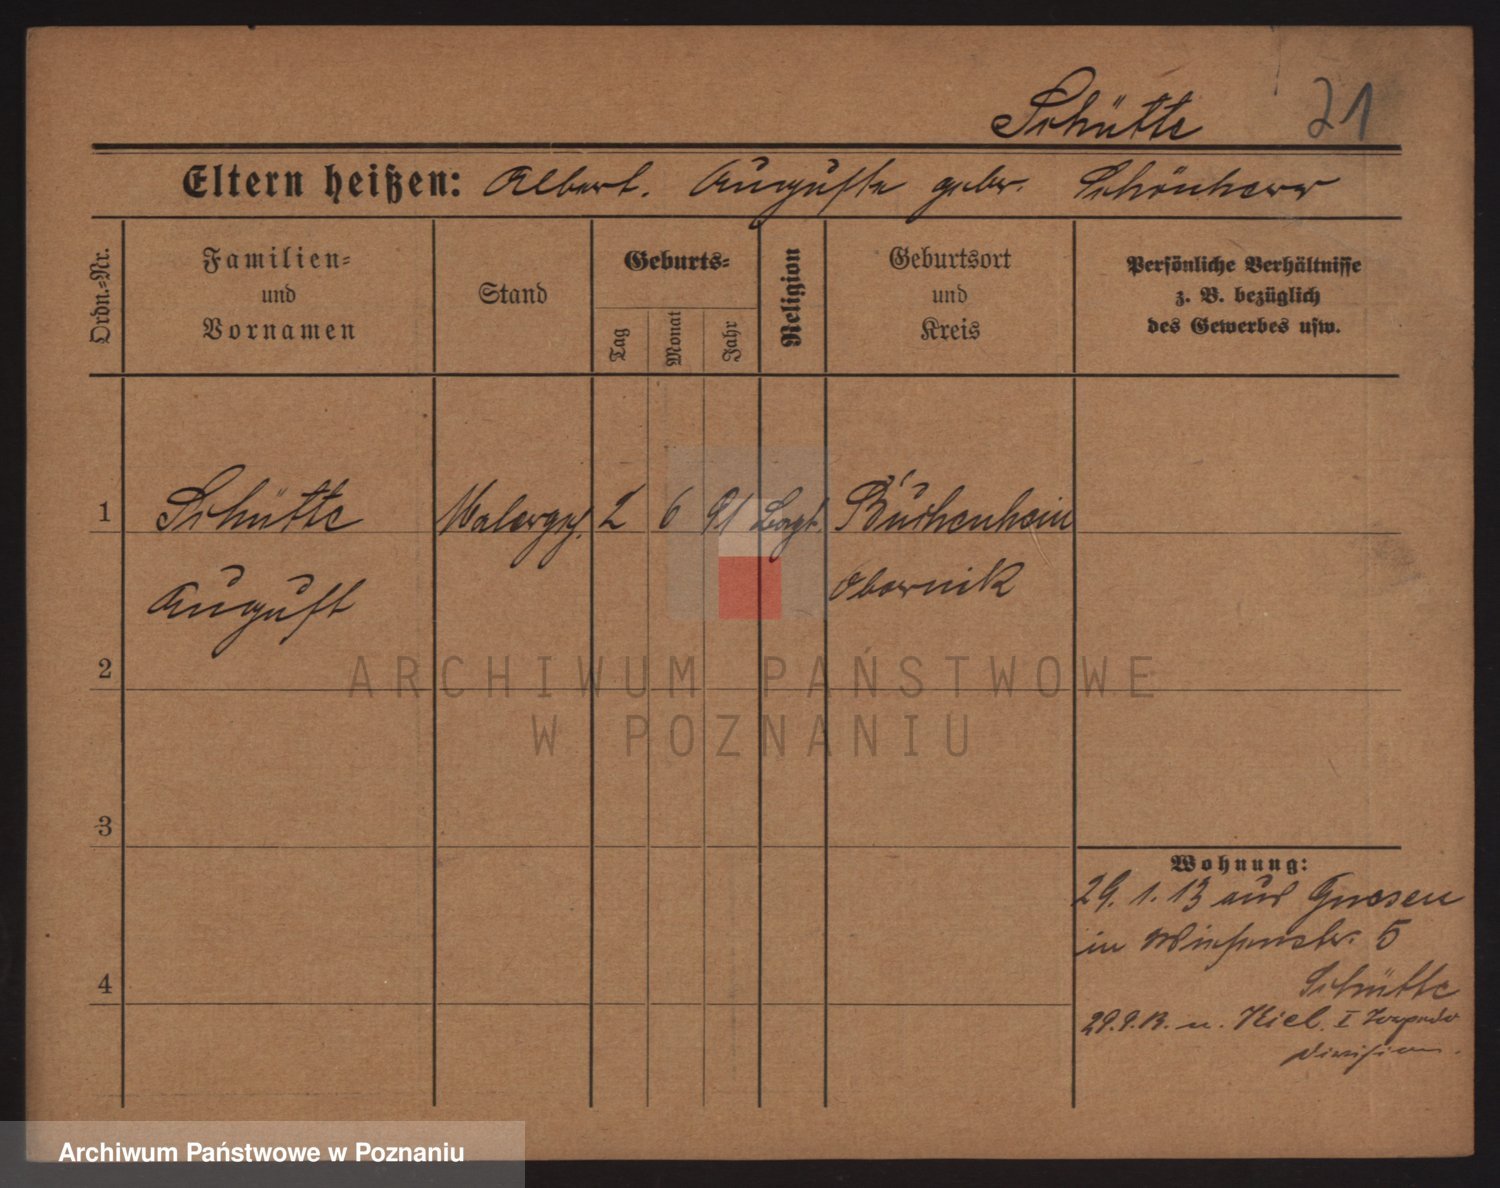 Schütte 21
Eltern heißen: Albert. Auguste gebr. Schönherr
Ordn.-Nr.
Familien- und Vornamen
Stand
Geburts-
Tag
Monat
Jahr
Religion
Geburtsort und Kreis
Persönliche Verhältnisse
z. B. bezüglich
des Gewerbes usw.
1 Schütte Malergeh. 2 6 91 Buchenhein
August Obornik
2
ARCHIWUM PAŃSTWOWE
W POZNANIU
3
4
Wohnung:
29.1.13 aus Gnesen
in Wiesenstr. 5
Schütte
29.9.13. n. Kiel. I Torpedo
Division.
Archiwum Państwowe w Poznaniu